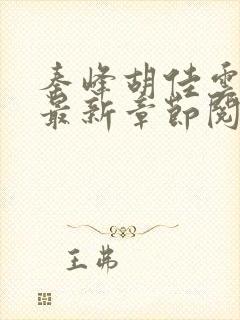 秦峰胡佳雲
最新章節閱
王弗